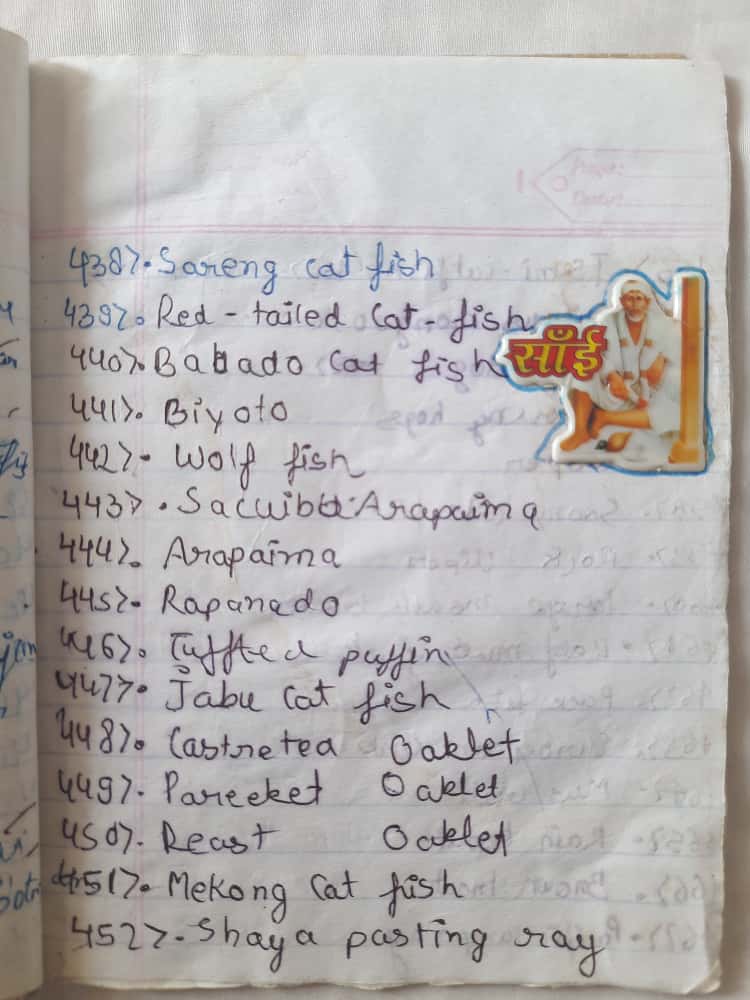 Page:
Date:
438>. Sareng cat fish
439>. Red - tailed Cat - fish
440>. Babado Cat fish
साँई
441>. Biyoto
442>. Wolf fish
443>. Arapaima
444>. Arapaima
445>. Rapanado
446>. Tuffted puffin
447>. Jabu Cat fish
448>. Castretea Oaklet
449>. Pareeket Oaklet
450>. Reast Oaklet
451>. Mekong Cat fish
452>. Shaya pasting ray